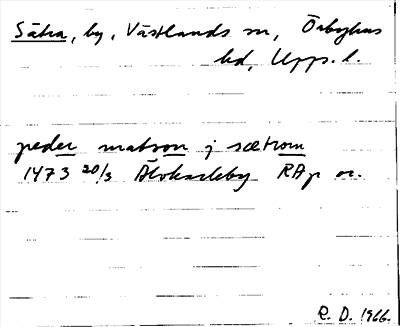 Sätra, by, Västlands sn, Örbyhus
hd, Upps. l.
peder matson j sætrom
1473 20/3 Älvkarleby RAp or.
R. D. 1966.